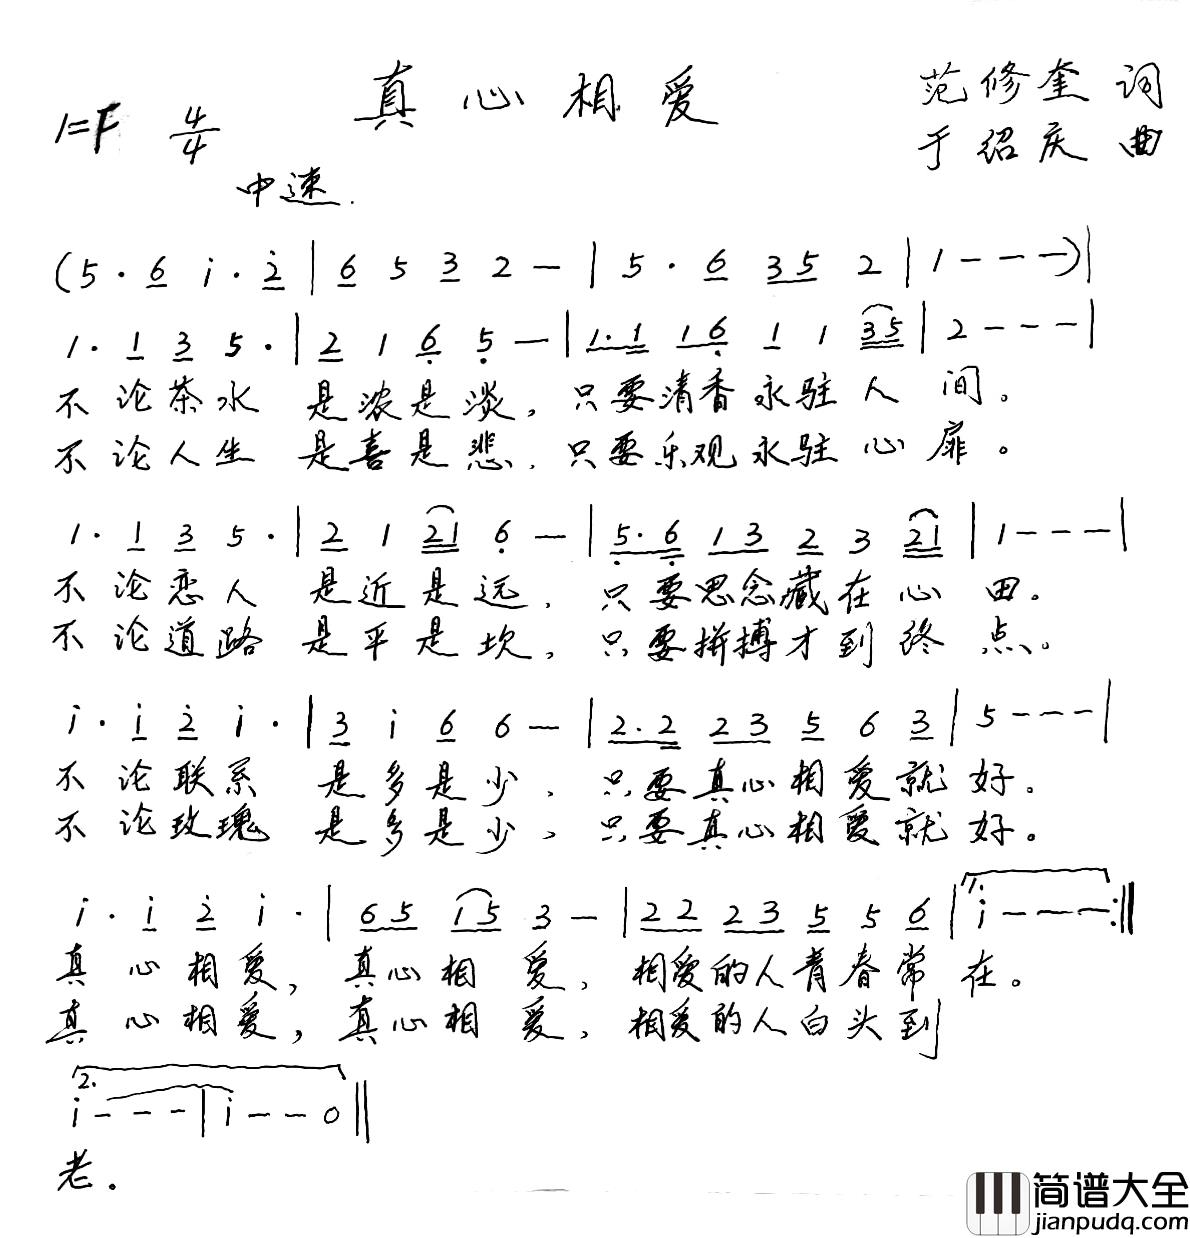 真心相爱
范修奎 词
1=F 4/4
于绍庆 曲
中速.
(5·6 i·2̇ | 6 5 3 2 — | 5·6 35 2 | 1 - - -)|
1·1 3 5·| 2 1 6̣ 5̣ — | 1·1 16̣ 1 1 35 | 2 - - - |
不论茶水 是浓是淡，只要清香永驻人间。
不论人生 是喜是悲，只要乐观永驻心扉。
1·1 3 5·| 2 1 21 6̣ — | 5̣·6̣ 13 2 3 21 | 1 - - - |
不论恋人 是近是远，只要思念藏在心田。
不论道路 是平是坎，只要拼搏才到终点。
i·i 2̇ i·| 3 i 6 6 — | 2·2 23 5 6 3 | 5 - - - |
不论联系 是多是少，只要真心相爱就好。
不论玫瑰 是多是少，只要真心相爱就好。
i·i 2̇ i·| 65 i5 3 — | 22 23 5 5 6 | 1. i - - - :‖
真心相爱，真心相爱，相爱的人青春常在。
真心相爱，真心相爱，相爱的人白头到
2.
i - - - | i - - 0 ‖
老.
简谱大全
jianpudq.com